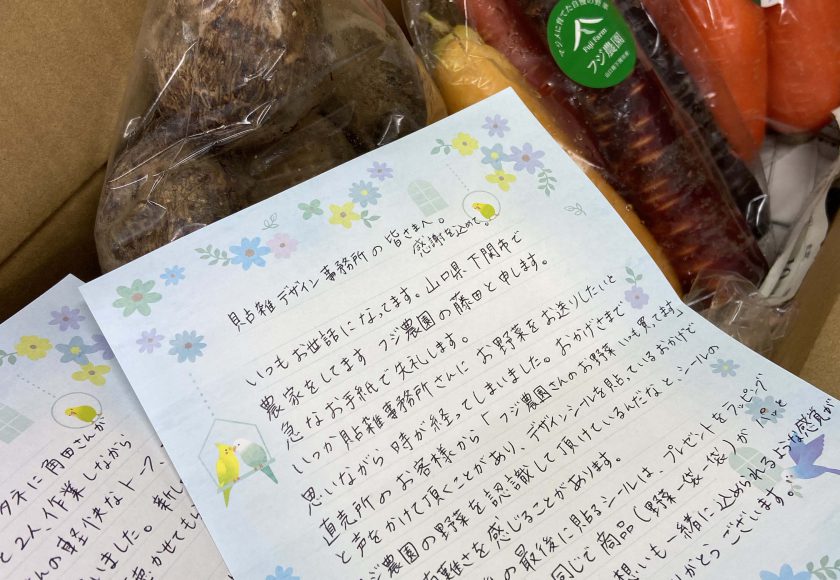 マジメに育てた自慢の野菜
Fuji Farm
フジ農園
貼雑デザイン事務所の皆さまへ。
感謝を込めて。
いつもお世話になってます。山口県下関市で
農家をしてます フジ農園の藤田と申します。
急なお手紙で失礼します。
いつか貼雑事務所さんに お野菜をお送りしたいと
思いながら 時が経ってしまいました。おかげさまで
直売所のお客様から「フジ農園さんのお野菜 いつも買ってます」
と声をかけて頂くことがあり、デザインシールを貼っているおかげで
フジ農園の野菜を認識して頂けているんだなと、シールの
有難さを感じることがあります。
の最後に貼るシールは、プレゼントをラッピング
同じで商品(野菜一袋一袋)が パッと
想いも一緒に込められるような感覚が
がとうございます。
タネに角田さんが
と2人、作業しながら
んの軽快なトーク、
いました。新し
聴かせても